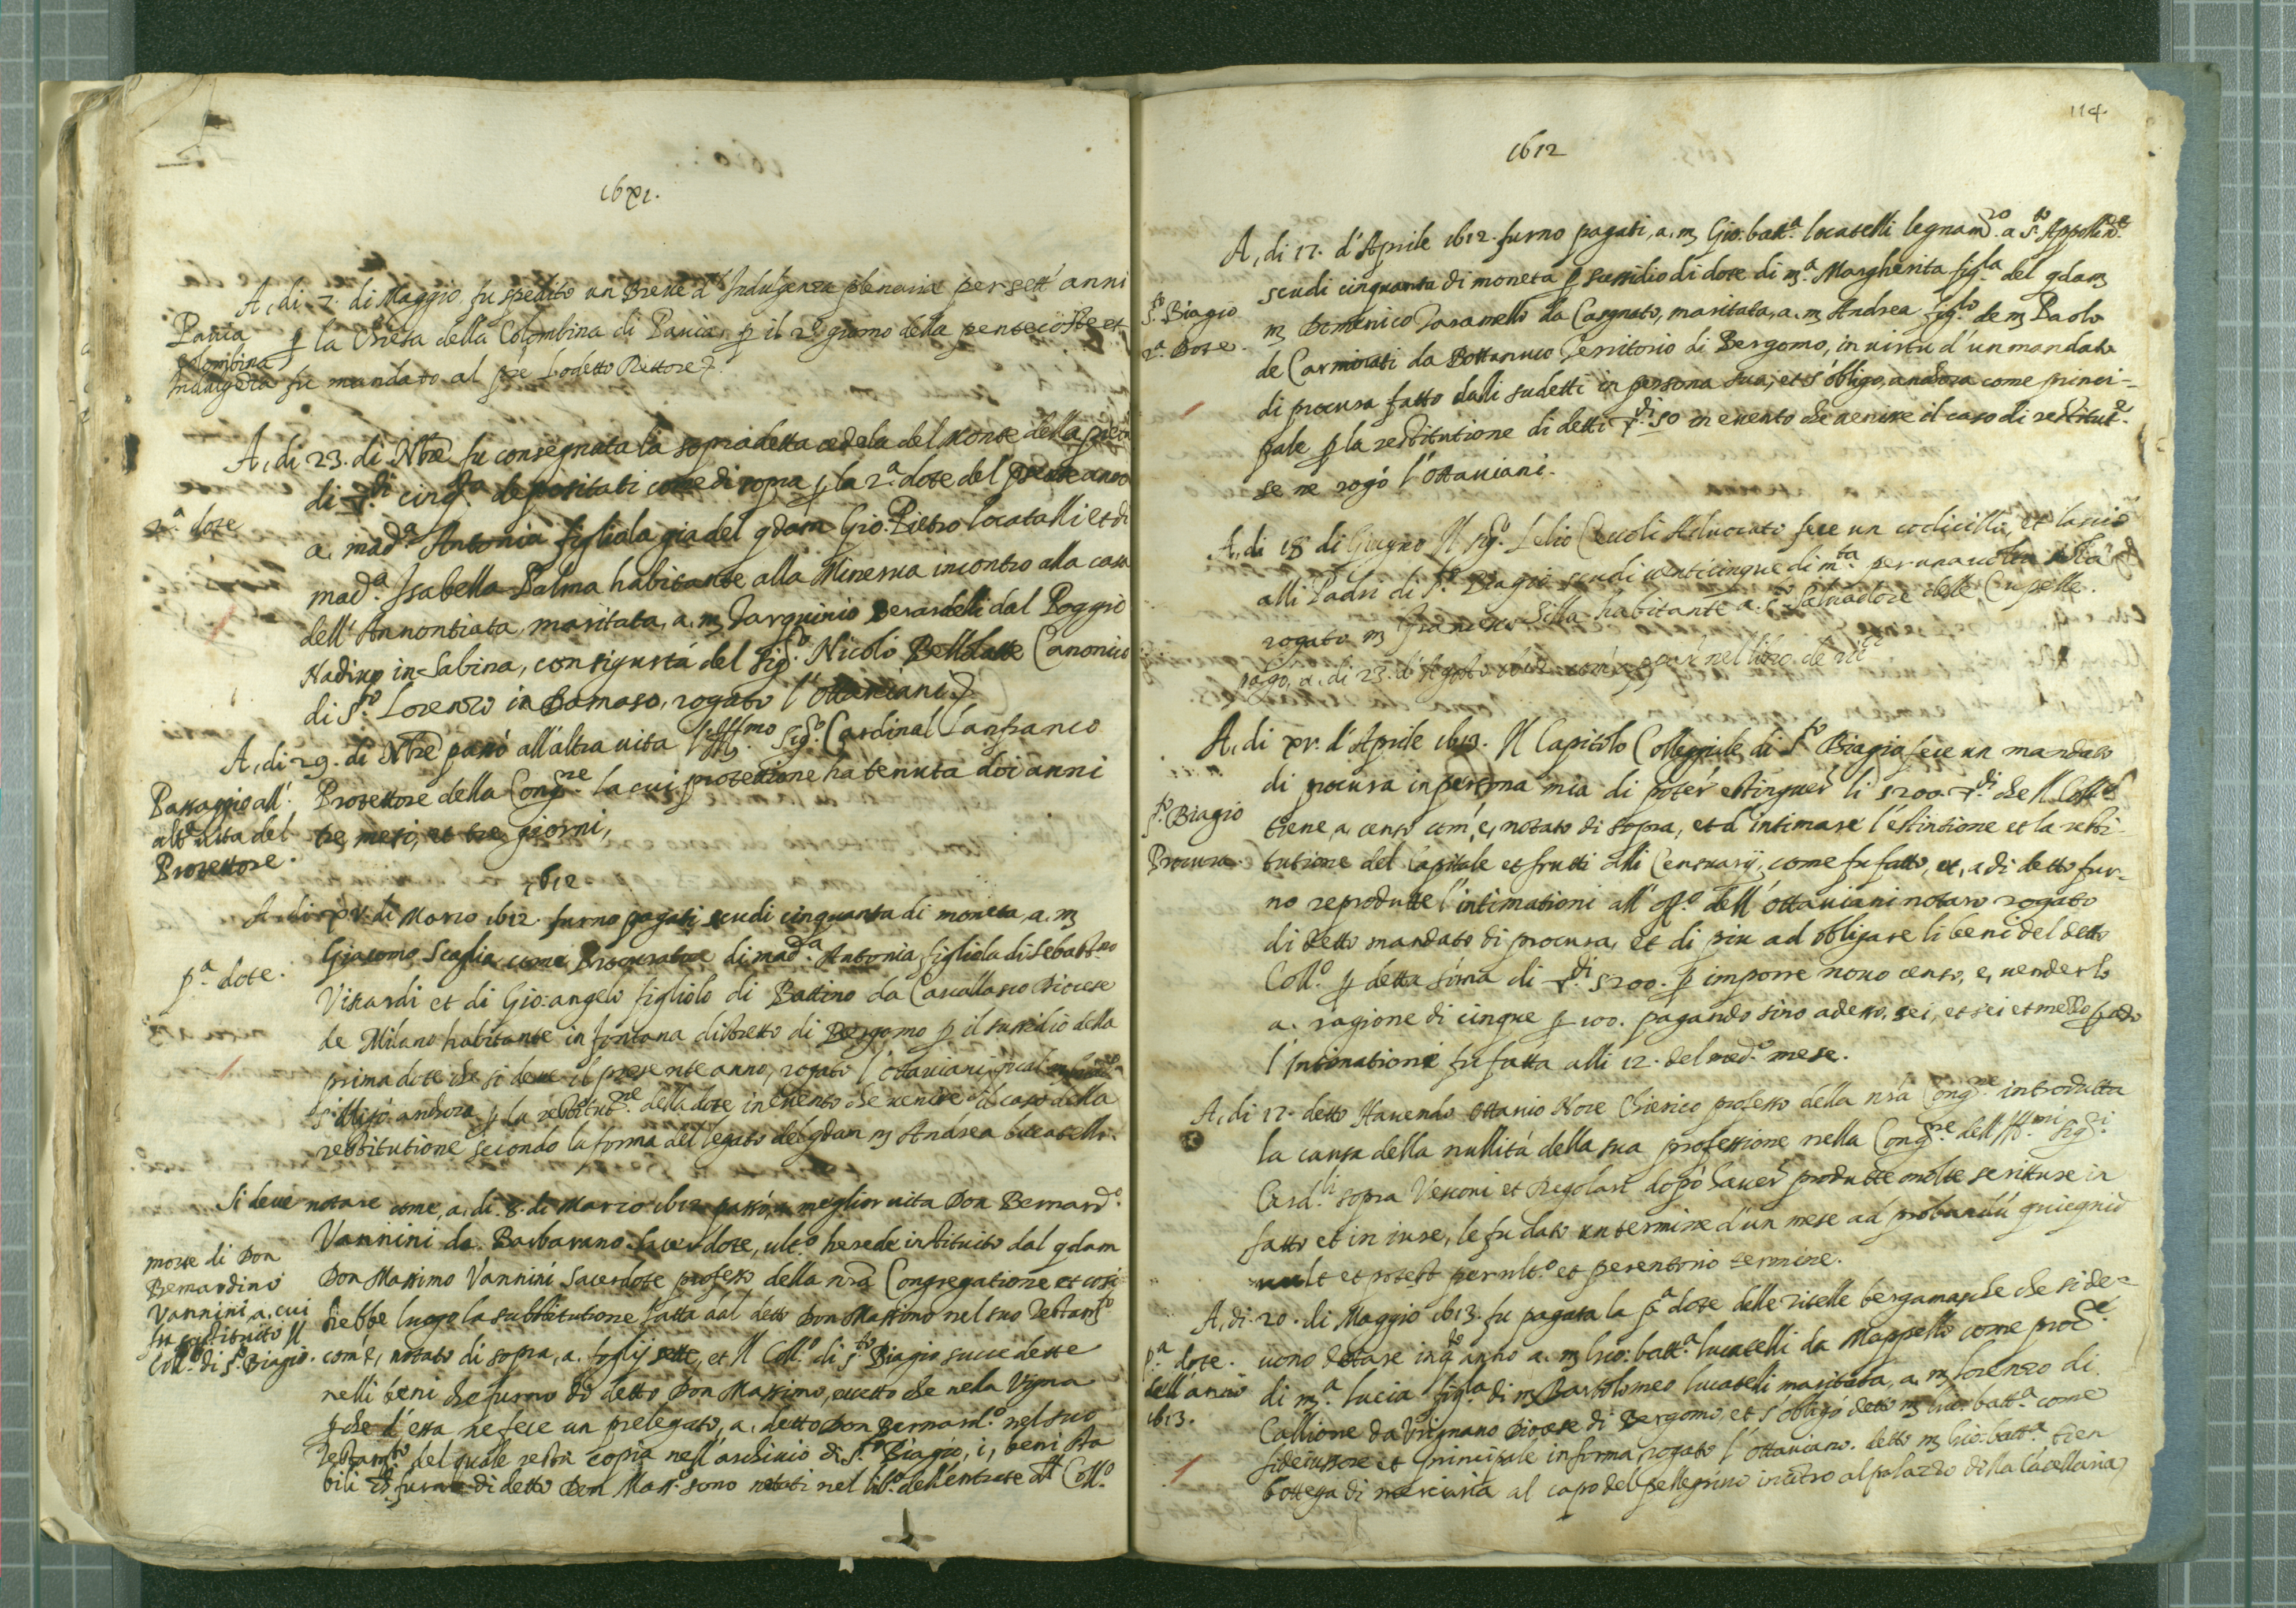 16xi.
A, di 7. di Maggio fu spedito un Breve d'Indulgenza plenaria per sett'anni
Pavia
Colombina
Indulgēza
p la Chiesa della Colombina di Pavia, p il 2º giorno della pentecoste et
fu mandato al pre Lodetto Rettore
A, di 23. di Nbre fu consegnata la sopradetta cedola del Monte della pietà
2.ª dote
di cinq.ta depositati come di sopra p la 2.ª dote del presente anno
a. mad.ª Antonia figliola gia del qdam Gio: Pietro locatelli et di
mad.ª Isabella Palma habitante alla Minerva incontro alla casa
dell'Annontiata, maritata, a. m Tarquinio Berardelli dal Poggio
Nativo in Sabina, con sigurtà del Sig.º Nicolò Canonico
di S.to Lorenzo in Damaso, rogato l'Ottaviani
A, di 29. di Nbre passò all'altra vita l'Ill.mo Sig.º Cardinal Lanfranco
Passaggio all'
alt.ª vita del
Protettore.
Protettore della Cong.ne la cui protettione ha tenuta doi anni
tre mesi, et tre giorni,
1612
A di xv. di Marzo 1612. furno pagati scudi cinquanta di moneta, a. m
pª dote.
Giacomo Scaglia come Procuratore di mad.ª Antonia figliola di Sebast.no
Vikardi et di Gio: angelo figliolo di Battino da Cavallasco Diocese
de Milano habitante in fontana distretto di Bergomo p il sussidio della
prima dote che si deve il presente anno, rogato l'ottaviani,
s'obligò anchora p la restitut.ne della dote in evento che venisse il caso della
restitutione secondo la forma del legato del qdam m Andrea lucatelli.
Si deve notare come, a. di. 8. di Marzo 1612 passò, a meglior vita Don Bernard.º
morte di Don
Bernardino
Vannini a. cui
fu sustituito Il
Coll.º di S.to Biagio.
Vannini da. Barbarano Sacerdote, ult.º herede instituito dal qdam
Don Massimo Vannini Sacerdote professo della nrā Congregatione et così
hebbe luogo la substitutione fatta dal detto Don Massimo nel suo Testam.to
com'è, notato di sopra, a. foglij sette, et Il Coll.º di S.to Biagio succedette
nelli beni che furno di detto Don Massimo, eccetto che nela Vigna
p che d'essa ne fece un prelegato, a. detto Don Bernard.º nel suo
Testam.to del quale resta copia nell'archivio di S.to Biagio, i, beni sta
bili che furno di detto Don Mass.º sono notati nel lib.º dell'entrate del Coll.º
114.
1612
A, di 17. d'Aprile 1612. furno pagati, a. m Gio: batt.ª locatelli legnam.ro a S.to Appollin.re
scudi cinquanta di moneta p sussidio di dote di m.ª Margherita fig.la del qdam
S.to Biagio
2.ª Dote.
m Domenico Taramello da Cargnato, maritata, a. m Andrea fig.lo de m Paolo
de Carminati da Bottanuco Territorio di Bergomo, in virtu d'un mandato
di procura fatto dalli sudetti in persona sua, et s'obligo, anchora come princi-
pale p la restitutione di detti 50 in evento che venisse il caso di restitut.e
se ne rogò l'ottaviani.
A, di 18 di Giugno Il sig.º Lelio Cevoli Advocato fece un codicillo, et lasciò
alli Padri di S.to Biagio scudi venticinque di m.ta per una volta
rogato m Francesco Silla habitante a. S.to Salvadore delle Cupelle.
pago, a. di 23. d'Agosto nel libro de
A, di xv. d'Aprile 1613. Il Capitolo Colleggiale di S.to Biagio fece un mandato
di procura in persona mia di poter estinguer li 5200. di che Il Coll.º
S.to Biagio
Procura.
tiene a. censo com'è, notato di sopra, et d'intimare l'estintione et la resti-
tutione del Capitale et frutti alli Censuarij, come fu fatto, et, a di detto fur-
no reprodutte l'intimationi all'off.º dell'ottaviani notaro rogato
di detto mandato di procura, et di piu ad obligare li beni del detto
Coll.º p detta soma di 5200. p imporre novo censo, e, venderlo
a. ragione di cinque p 100. pagando sino adesso. sei, et sei et mezzo
l'Intimatione fu fatta alli 12. del med.º mese.
A, di 17. detto Havendo Ottavio Nore Chierico professo della nrā Cong.ne introdutta
la causa della nullità della sua professione nella Cong.ne dell'Ill.mi Sig.ri
Card.li sopra Vescovi et Regolari dopò haver produtte molte scritture in
fatto et in iure, le fu dato un termine d'un mese ad probandū quicquid
vult et potest per ult.º et perentorio termine.
A, di 20. di Maggio 1613. fu pagata la p.ª dote delle zitelle bergamasche che si de-
p.ª dote.
dell'anno
1613.
vono dotare in q.to anno a. m Gio: batt.ª lucatelli da Mappello come proc.re
di m.ª Lucia fig.la di m Bartolomeo lucatelli maritata, a. m Lorenzo di
Callione da Vrgnano Diocese di Bergomo, et s'obligò detto m Gio: batt.ª come
fideiussore et principale in forma, rogato l'ottaviano. detto m Gio: batt.ª tien
bottega di merciaria al capo del pellegrino incōtro al palazzo della Cācellaria